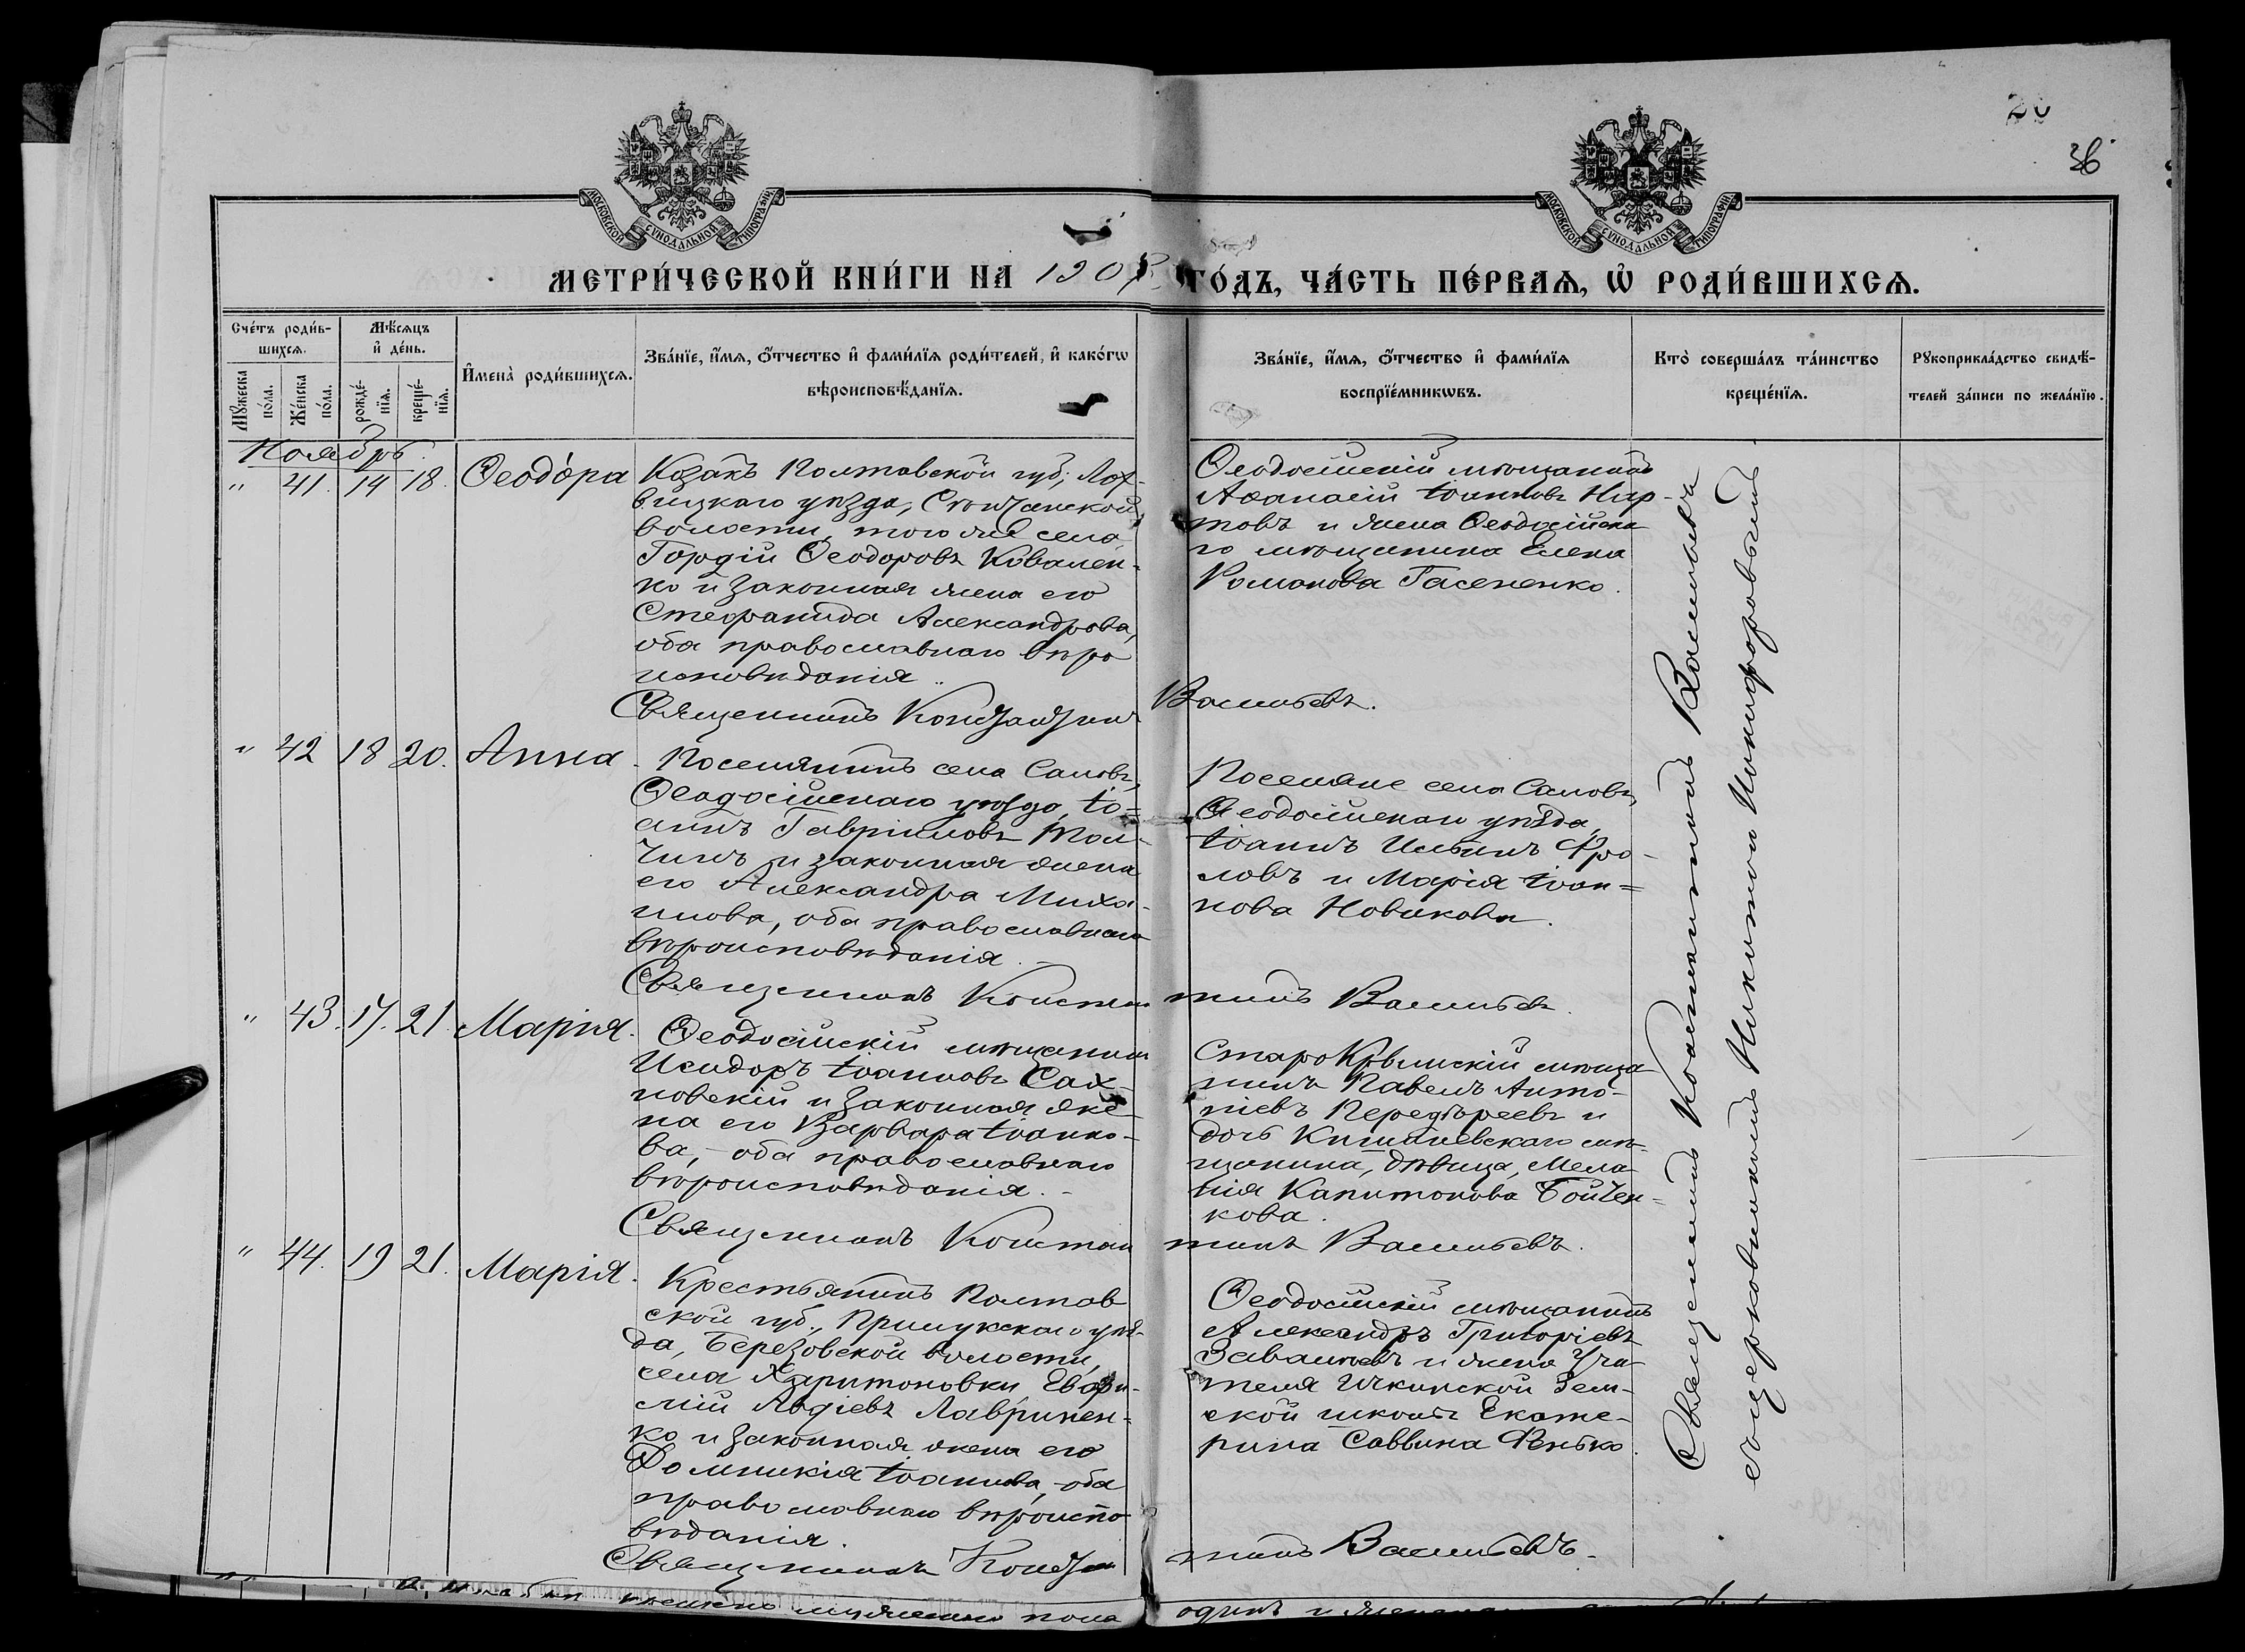 20
36
МОСКОВСКОЙ СѴНОДАЛЬНОЙ ТИПОГРАФІИ
МОСКОВСКОЙ СѴНОДАЛЬНОЙ ТИПОГРАФІИ
МЕТРИ́ЧЕСКОЙ КНИ́ГИ НА 190 ГО́ДЪ, ЧА́СТЬ ПЕ́РВАѦ, Ѡ҆ РОДИ́ВШИХСѦ.
Сче́тъ роди́в-
шихсѧ.
Мѣ́сѧцъ
и҆ де́нь.
Мꙋ́жеска
по́ла.
Же́нска
по́ла.
рожде́-
нїѧ.
креще́-
нїѧ.
И҆мена̀ роди́вшихсѧ.
Зва́нїе, и҆́мѧ, ѻ҆́тчество и҆ фами́лїѧ роди́телей, и҆ како́гѡ
вѣроисповѣ́данїѧ.
Зва́нїе, и҆́мѧ, ѻ҆́тчество и҆ фами́лїѧ
воспрїе́мникѡвъ.
Кто̀ соверша́лъ та́инство
креще́нїѧ.
Рꙋкоприкла́дство свидѣ́-
телей за́писи по жела́нїю.
Ноябрь.
" 41. 14 18. Ѳеодо́ра
Козакъ Полтавской губ., Лох-
вицкаго уѣзда,
волости, того же села
Гордій Ѳеодоровъ Ковален-
ко и законная жена его
Стефанида Александрова,
оба православнаго вѣро
исповѣданія.
Ѳеодосійскій мѣщанинъ
Аѳанасій Іоанновъ Нар-
товъ и жена Ѳеодосійска
го мѣщанина Елена
Романова Гасененко.
Священникъ Константинъ Васильевъ.
" 42 18 20. Анна.
Поселянинъ села Саловъ,
Ѳеодосійскаго уѣзда, Іо=
аннъ Гавріиловъ Тол-
чинъ и законная жена
его Александра Миха-
илова, оба православнаго
вѣроисповѣданія.
Поселяне села Саловъ,
Ѳеодосійскаго уѣзда,
Іоаннъ Ильинъ Фро-
ловъ и Марія Іоан=
нова Новикова.
Священникъ Константинъ Васильевъ.
" 43. 17. 21. Марія.
Ѳеодосійскій мѣщанинъ
Исидоръ Іоанновъ Сах-
новскій и законная же-
на его Варвара Іоанно-
ва, - оба православнаго
вѣроисповѣданія. -
Старокрымскій мѣща
нинъ Павелъ Анто-
ніевъ Передѣреевъ и
дочь Кишиневскаго мѣ-
щанина, дѣвица, Мела
нія Капитонова Бойчен-
кова.
Священникъ Константинъ Васильевъ.
" 44. 19 21. Марія.
Крестьянинъ Полтав
ской губ., Прилукскаго уѣз-
да, Березовской волости,
села Харитоновки, Евфи-
мій Авдіевъ Лавринен-
ко и законная жена его
Домникія Іоаннова, - оба
православнаго вѣроиспо
вѣданія.
Ѳеодосійскій мѣщанинъ
Александръ Григоріевъ
и жена учи-
теля Ичкинской Зем-
ской школы Екате-
рина Саввина Фенько.
Священникъ Константинъ Васильевъ.
Священникъ Константинъ Васильевъ
съ церковникомъ Никитою Никифоровымъ.